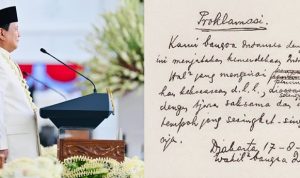 Proklamasi.
Kami bangsa Indonesia den
ini menjatakan kemerdekaan Indo
Hal² jang mengenai
kekoeasaan d.l.l., di
dengan tjara saksama dan
tempoh jang sesingkat-sing
Djakarta 17-8-
Wakil² bangsa